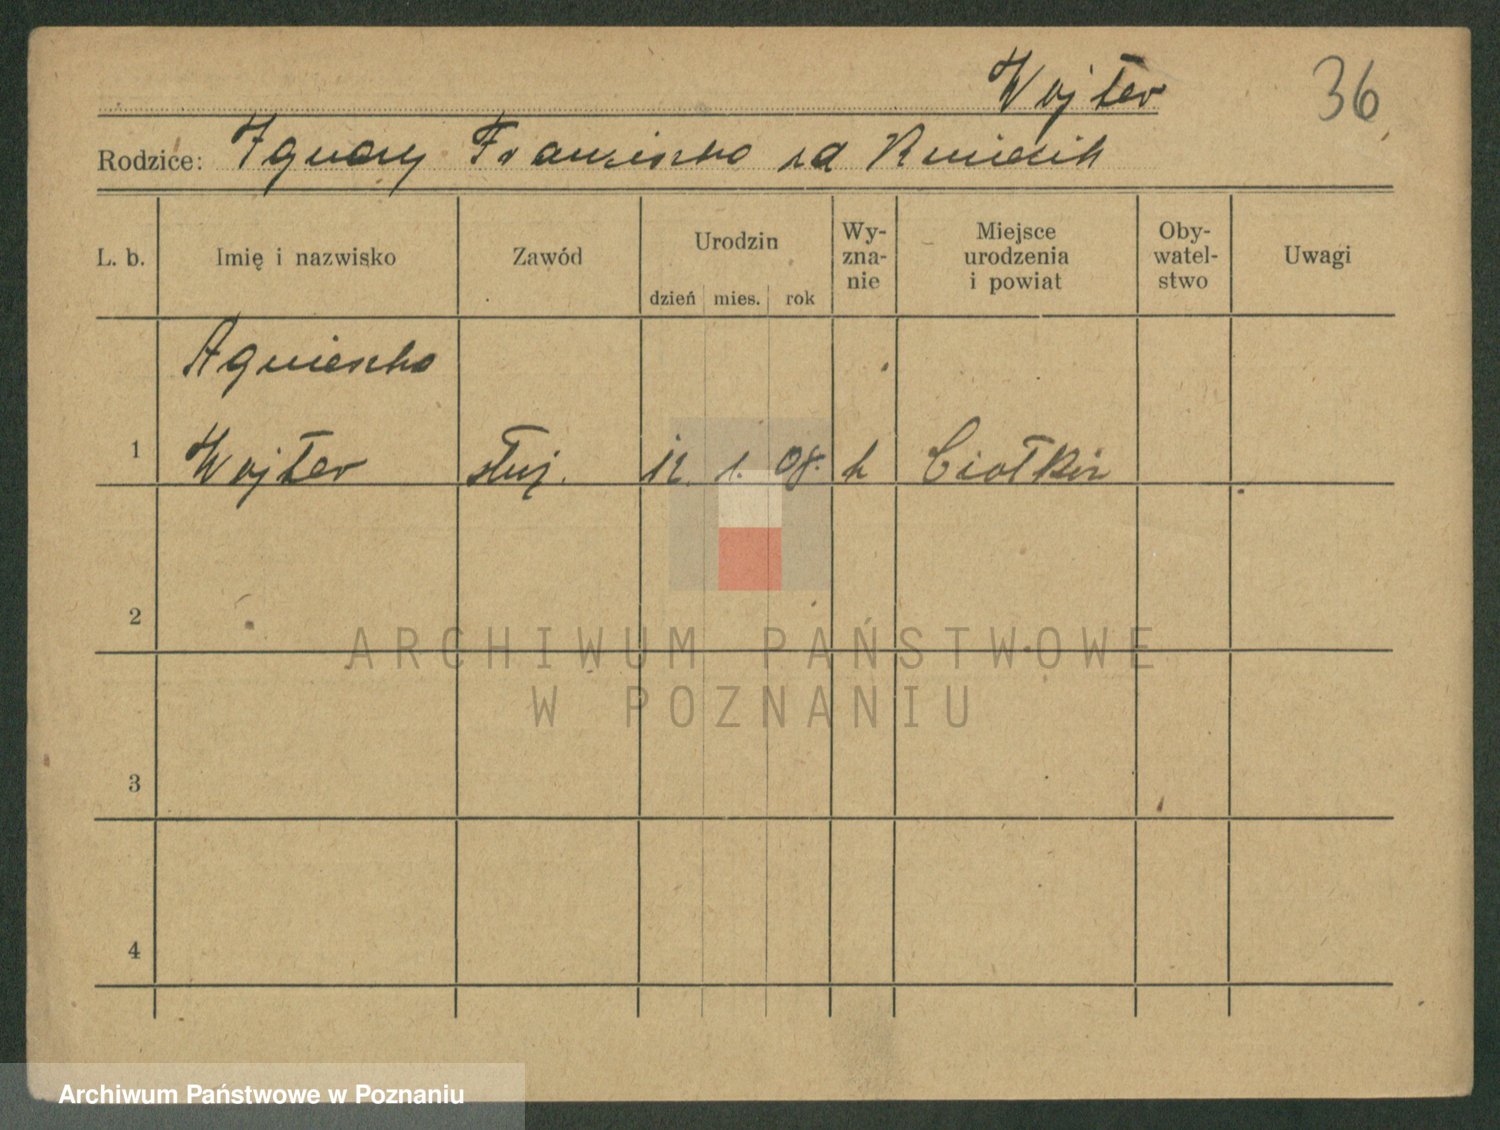 Wojter 36
Rodzice: Ignacy Franciszka zd Kmiecik
L. b. Imię i nazwisko Zawód Urodzin dzień mies. rok Wy-zna-nie Miejsce urodzenia i powiat Oby-watel-stwo Uwagi
Agnieszka
1 Wojter służ. 12. 1. 08. k
2
ARCHIWUM PAŃSTWOWE
W POZNANIU
3
4
Archiwum Państwowe w Poznaniu